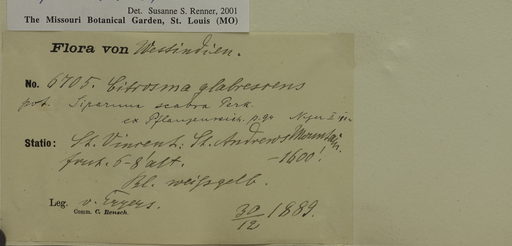 Det. Susanne S. Renner, 2001
The Missouri Botanical Garden, St. Louis (MO)
Flora von Westindien.
No. 6705. Citrosma glabrescens
pot. Siparuna scabra Perk.
ex Pflanzenreich. p. 90
Statio: St. Vincent; St. Andrews Mountain
frut. 6-8' alt. -1600'.
Bl. weissgelb.
Leg. v. Eggers.
Comm. C. Rensch.
30/12 1889.